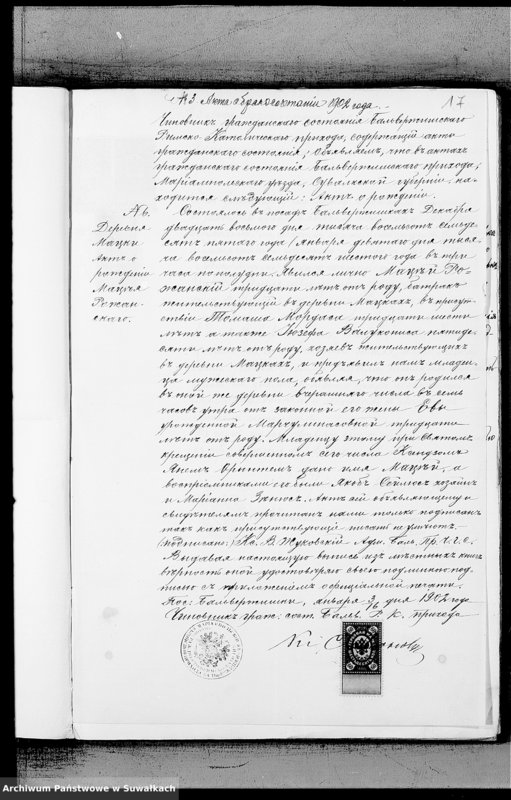 К № 3 Акта о бракосочетании 1902 года.
17
Чиновник гражданского состояния Бальвержишского
Римско-Католического прихода, содержащий акты
гражданского состояния, объявляем, что в актах
гражданского состояния Бальвержишского прихода,
Мариампольского уезда, Сувалкской губернии на-
ходится следующий: Акт о рождении.
№ 6.
Деревня
Мацки
Акт о
рождении
Мацея
Рожан-
скаго.
Состоялось в посаде Бальвержишках Декабря
двадцать восьмого дня тысяча восемьсот семьде-
сят пятого года / Января девятого дня тыся-
ча восемьсот семьдесят шестого года в три
часа по полудни. Явился лично Мацей Ро-
жанский тридцати лет от роду, батрак
жительствующий в деревни Мацках, в присут-
ствии Томаша Моргуса тридцати шести
лет а также Юзефа Валукониса пятиде-
сяти лет от роду, хозяев жительствующих
в деревни Мацках, и предъявил нам младен-
ца мужеского пола, объявляя, что он родился
в той же деревни вчерашняго числа в семь
часов утра от законной его жены Евы
урожденной Марчулинасовной тридцати
лет от роду. Младенцу этому при Святом
крещении совершенном сего числа Ксендзом
дано имя Мацей, а
восприемниками его были Якоб хозяин
и Марианна Акт сей объявляющему и
свидетелям прочитан нами только подписан
так как присутствующий писать не умеют.
(подписано) Кс. В. Жуковский Адм. Баль. Пр. С. Г. С.
Выдавая настоящую выпись из местных книг
верность оной удостоверяю своею подписью под-
писью с приложением официальной печати.
Пос: Бальвержишки, января 3/16 дня 1902 года
Чиновник граж: сост. Баль. Р. К. прихода
Кс.
Archiwum Państwowe w Suwałkach